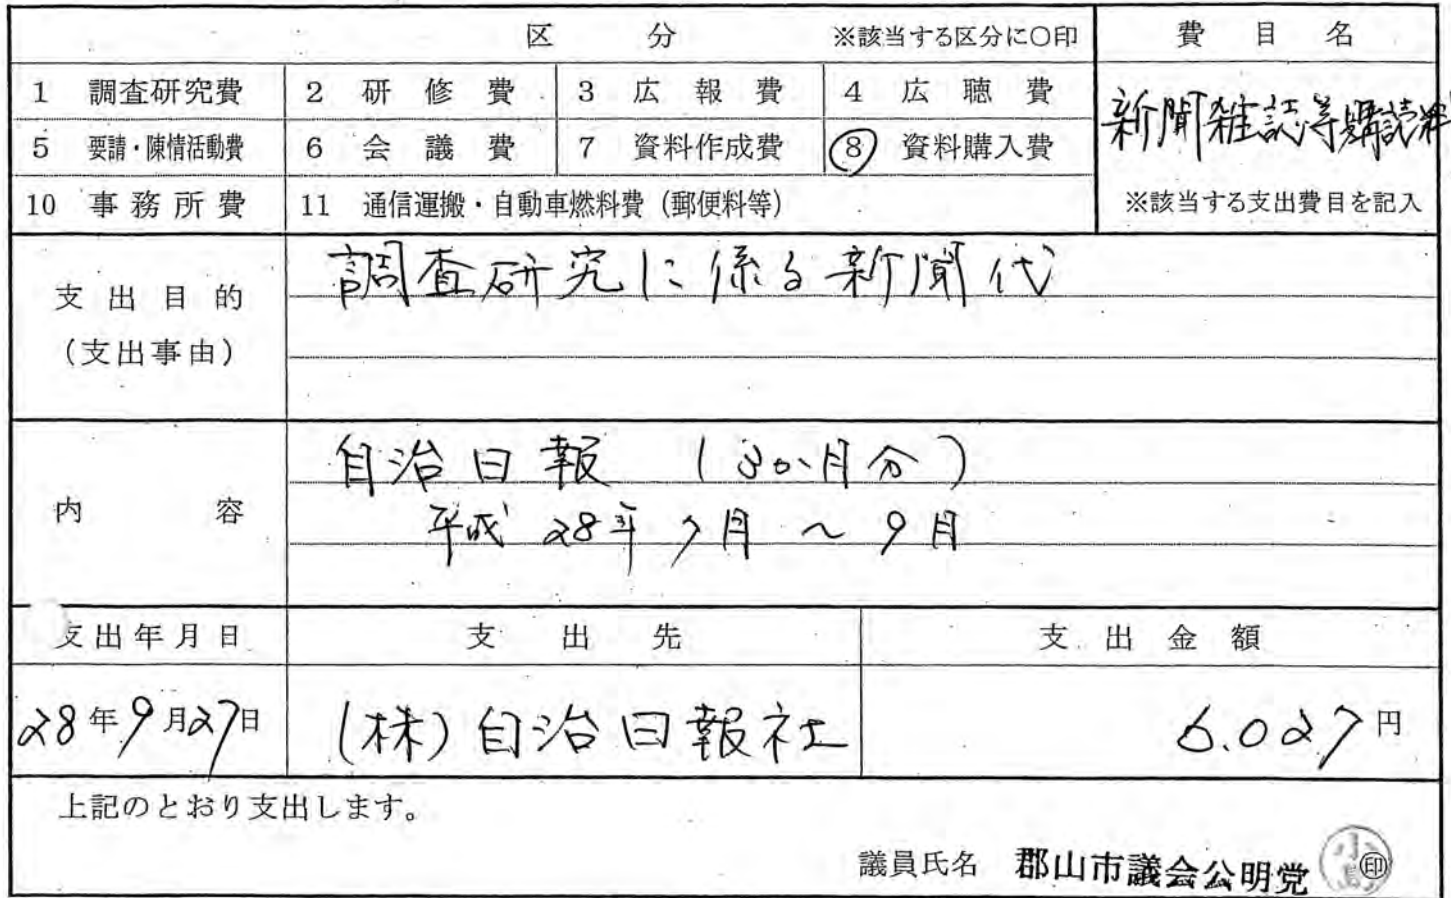 区　分　※該当する区分に〇印　費　目　名
1　調査研究費　2　研　修　費　3　広　報　費　4　広　聴　費　新聞雑誌等購読料
5　要請・陳情活動費　6　会　議　費　7　資料作成費　⑧　資料購入費
10　事務所費　11　通信運搬・自動車燃料費（郵便料等）　※該当する支出費目を記入
支出目的　調査研究に係る新聞代
（支出事由）
自治日報　（3か月分）
内　容　平成28年7月～9月
支出年月日　支　出　先　支　出　金　額
28年9月27日　（株）自治日報社　6.027円
上記のとおり支出します。
議員氏名　郡山市議会公明党　小島　㊞